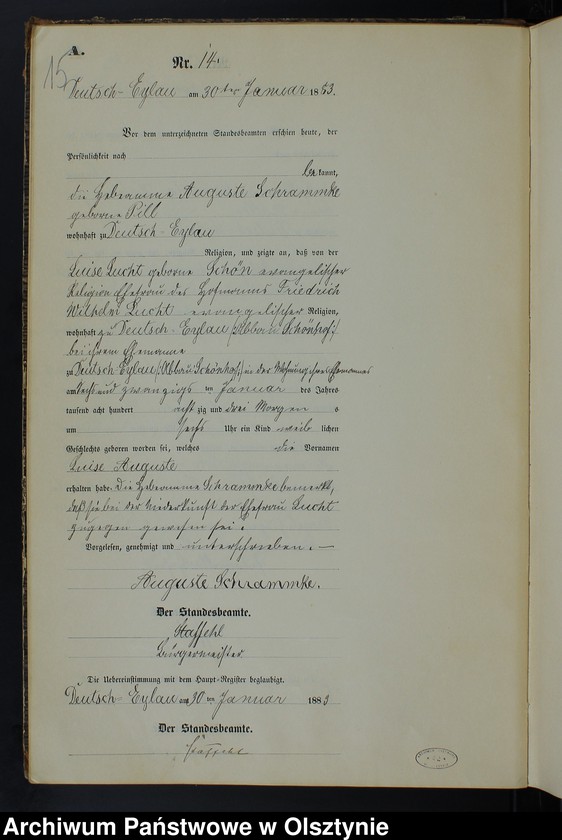 15
A.
Nr. 14.
Deutsch-Eylau am 30ten Januar 1883.
Vor dem unterzeichneten Standesbeamten erschien heute, der
Persönlichkeit nach
be kannt,
die Hebamme Auguste Schrammke
geborne Pill
wohnhaft zu Deutsch-Eylau
Religion, und zeigte an, daß von der
Luise Lucht geborne Schön evangelischer
Religion Ehefrau des Hofmanns Friedrich
Wilhelm Lucht evangelischer Religion,
wohnhaft zu Deutsch-Eylau (Abbau Schönhof)
bei ihrem Ehemanne
zu Deutsch Eylau (Abbau Schönhof) in der Wohnung ihres Ehemannes
am sechs und zwanzigs ten Januar des Jahres
tausend acht hundert acht zig und drei Morgens
um sechs Uhr ein Kind weib lichen
Geschlechts geboren worden sei, welches die Vornamen
Luise Auguste
erhalten habe. Die Hebamme Schrammke bemerkt,
daß sie bei der Niederkunft der Ehefrau Lucht
zugegen gewesen sei.
Vorgelesen, genehmigt und unterschrieben. —
Auguste Schrammke.
Der Standesbeamte.
Staffehl
Bürgermeister
Die Uebereinstimmung mit dem Haupt-Register beglaubigt.
Deutsch-Eylau am 30 ten Januar 1883
Der Standesbeamte.
Staffehl
Archiwum Państwowe w Olsztynie